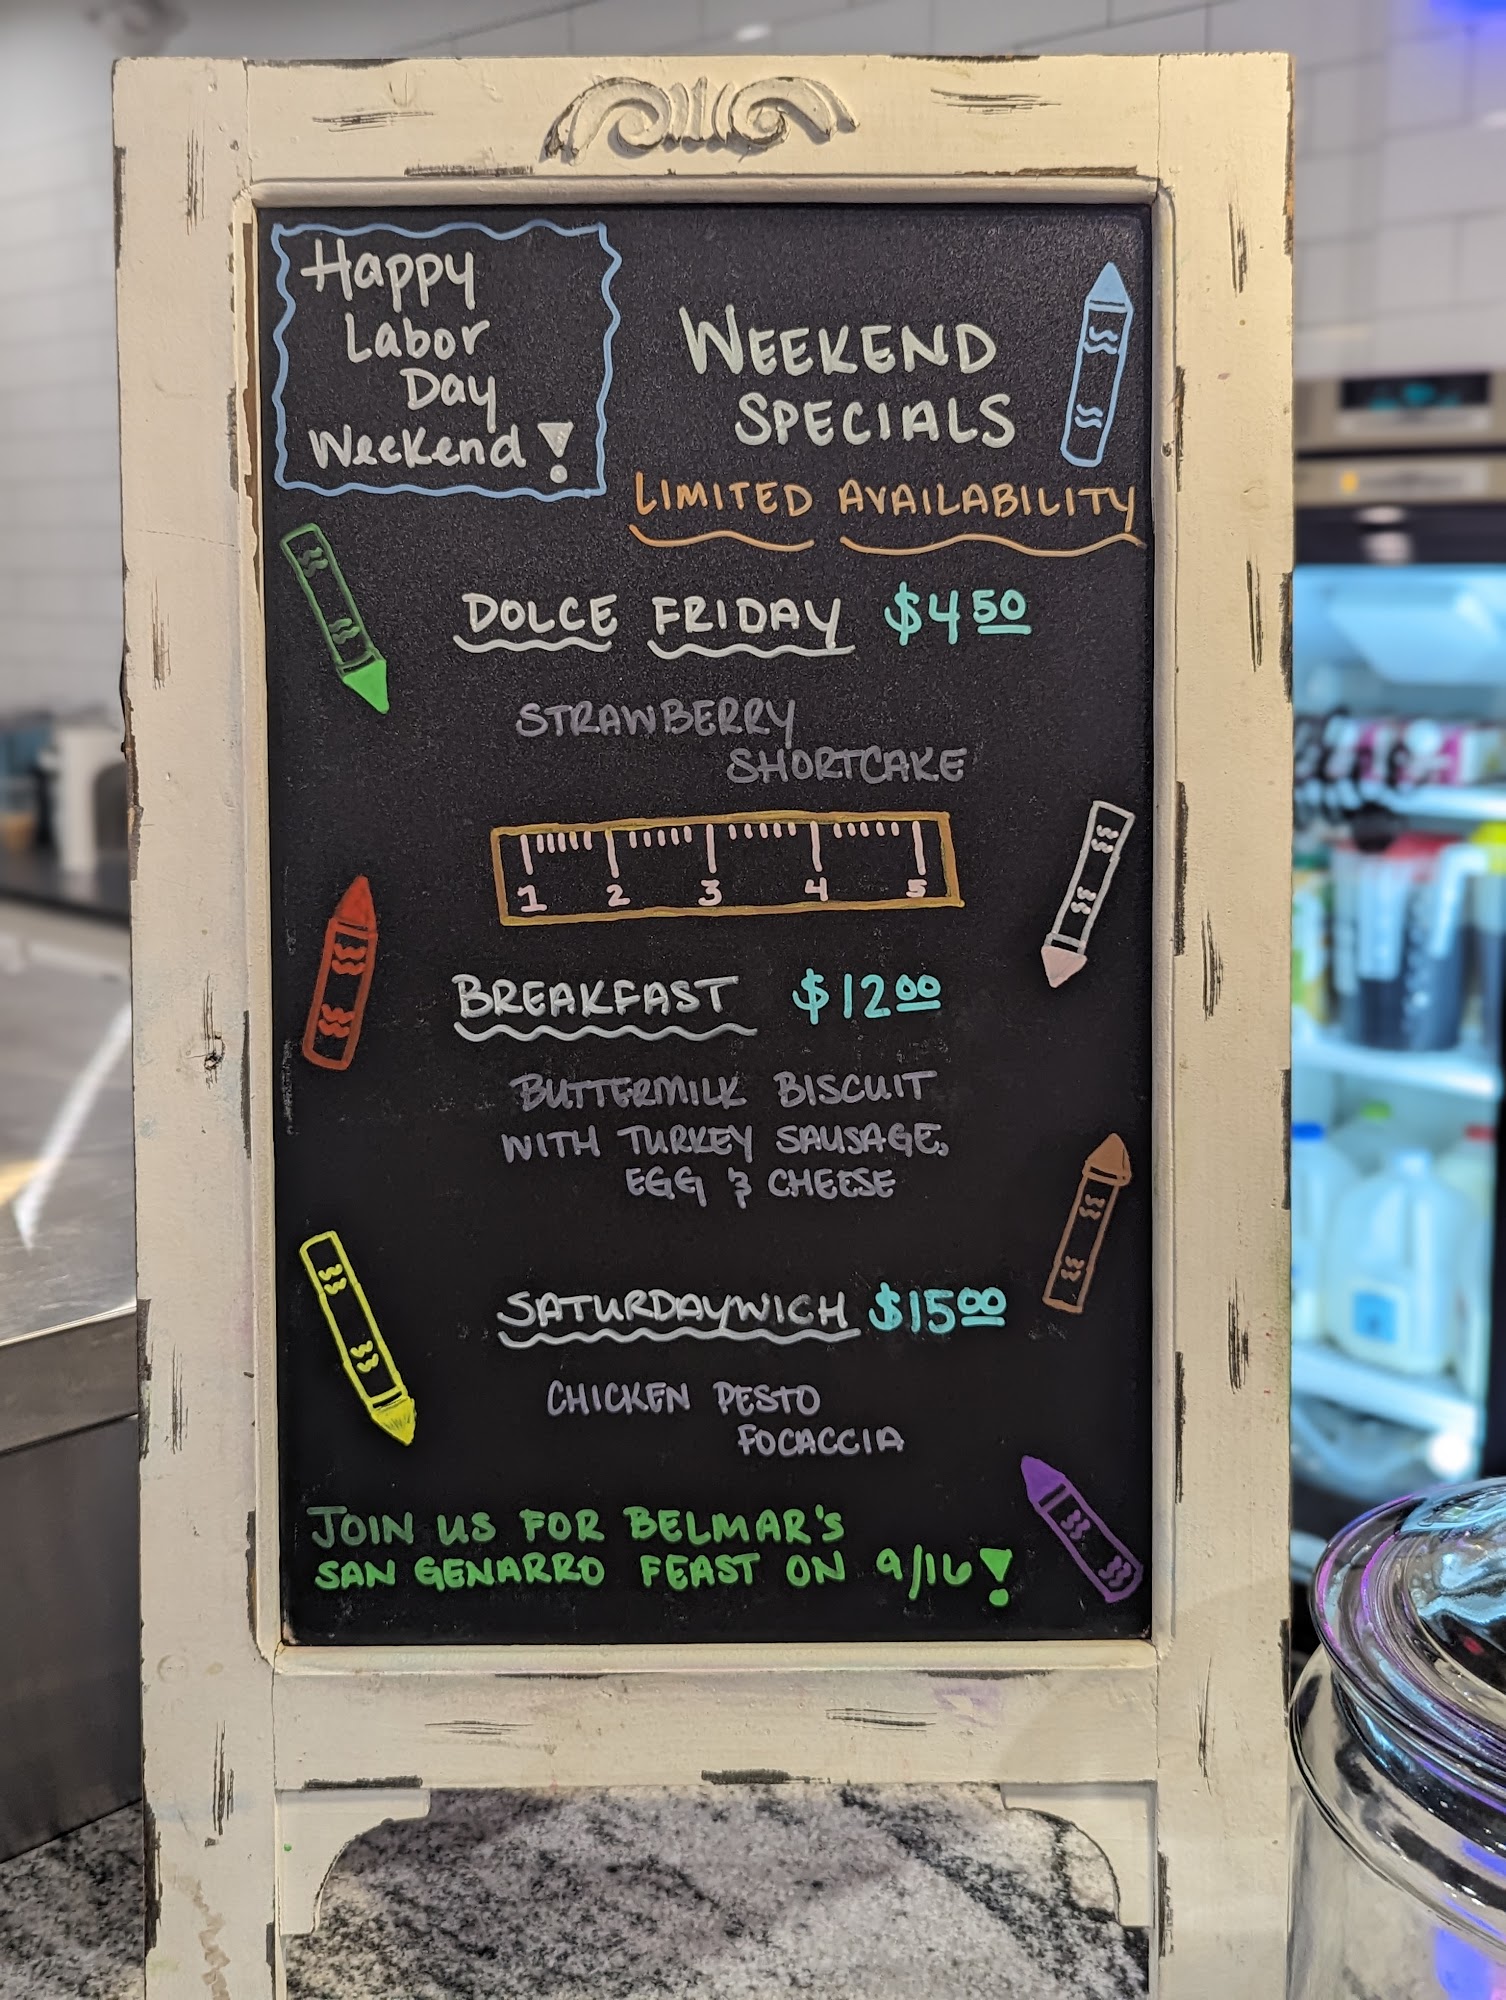 Happy
Labor
Day
Weekend!
WEEKEND
SPECIALS
LIMITED AVAILABILITY
DOLCE FRIDAY $4 50
STRAWBERRY
SHORTCAKE
1 2 3 4 5
BREAKFAST $12 00
BUTTERMILK BISCUIT
WITH TURKEY SAUSAGE,
EGG & CHEESE
SATURDAYWICH $15 00
CHICKEN PESTO
FOCACCIA
JOIN US FOR BELMAR'S
SAN GENARRO FEAST ON 9/16!